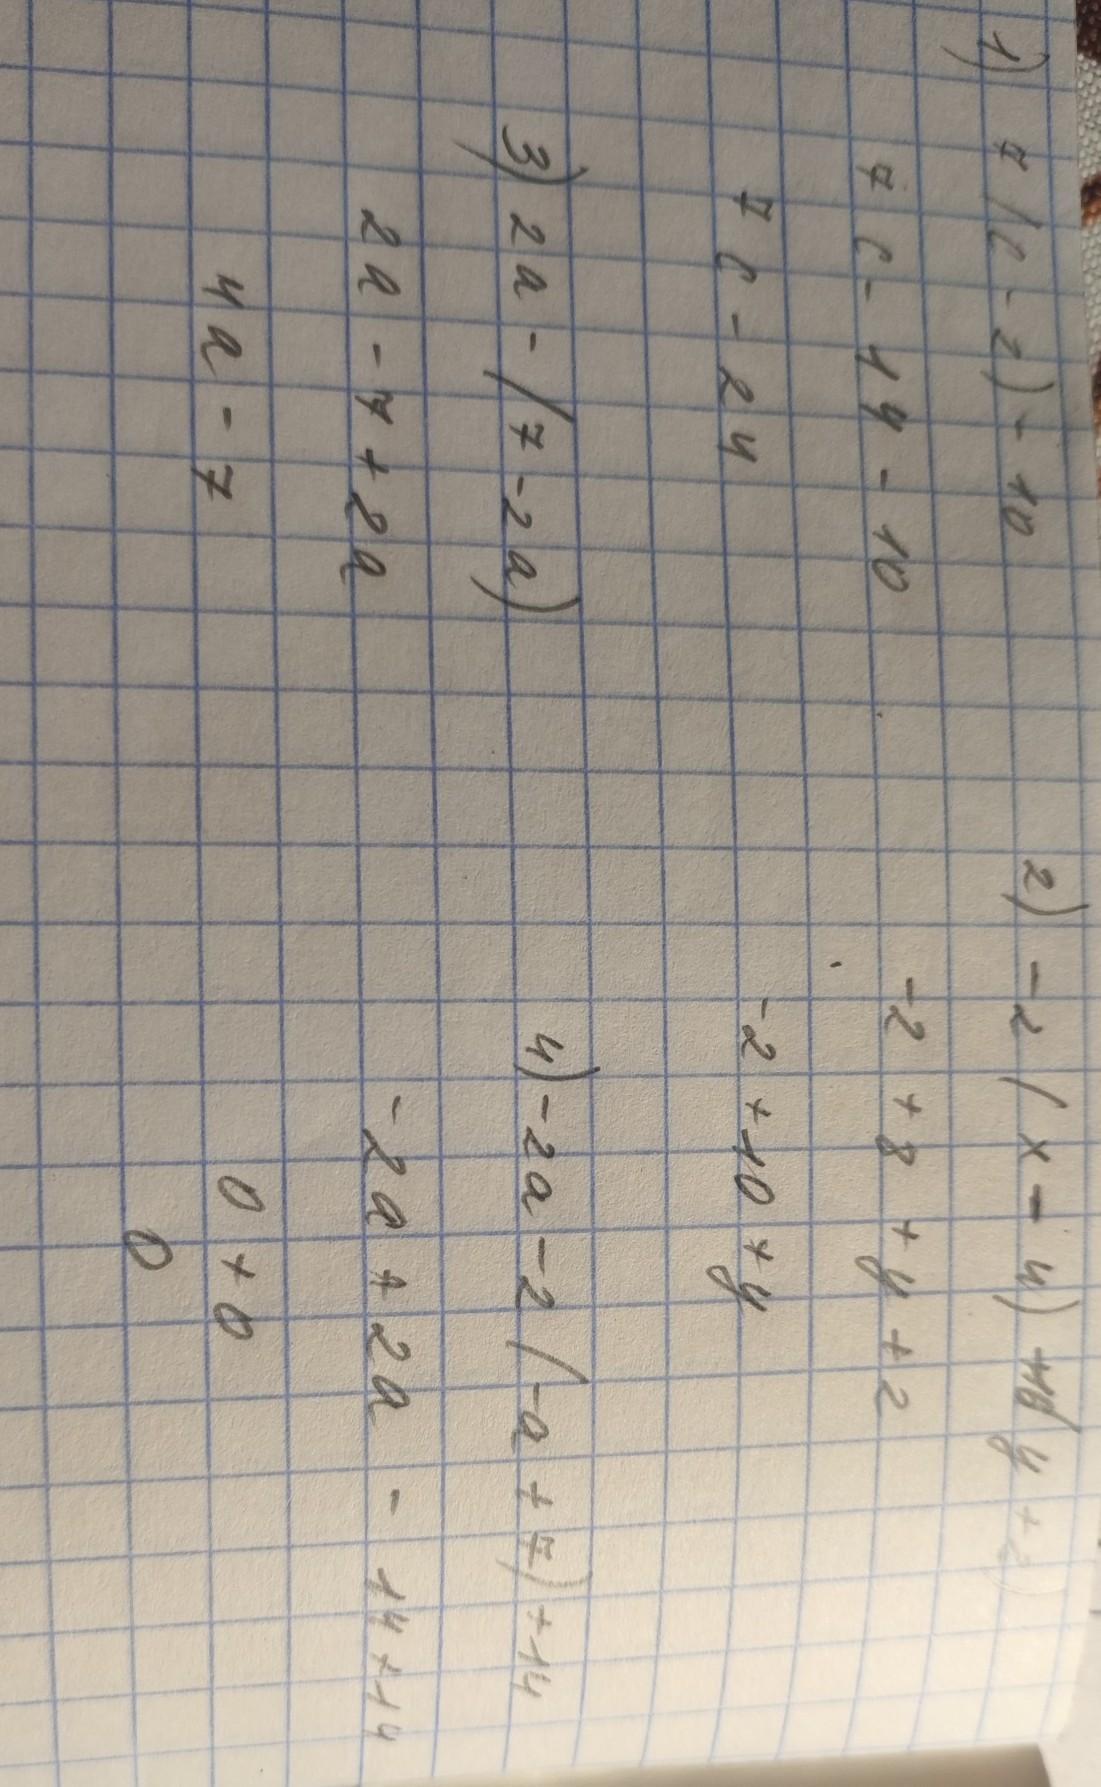 1) 7(c-2)-10
7c-14-10
7c-24
2) -2(x-4)+(y+2)
-2+8+y+2
-2+10+y
3) 2a-(7-2a)
2a-7+2a
4a-7
4) -2a-2(-a+7)+14
-2a+2a-14+14
0+0
0